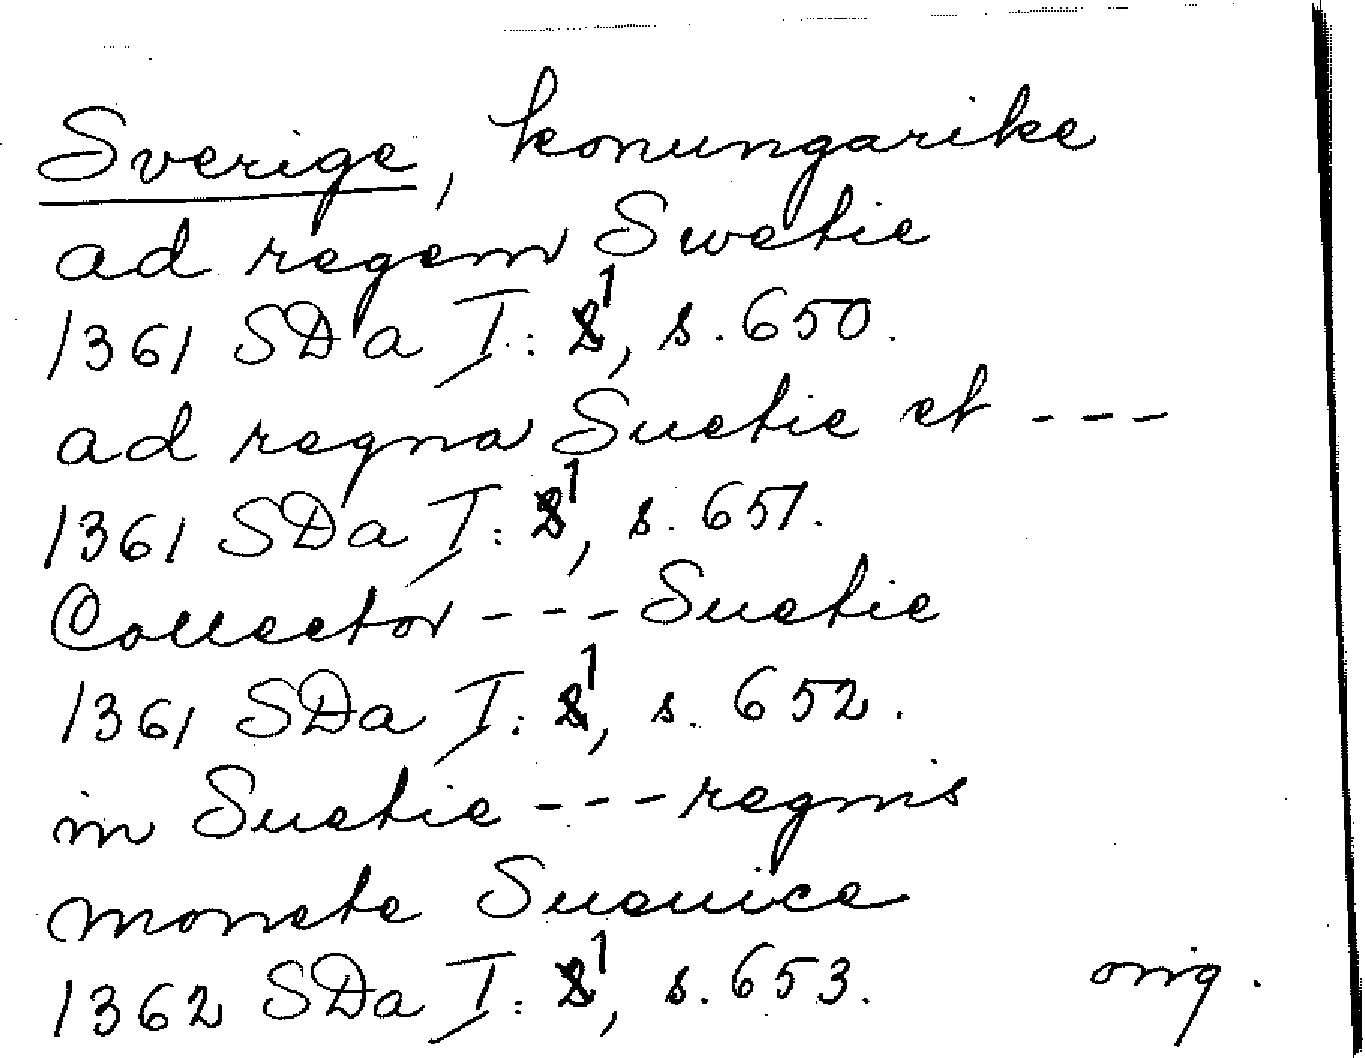 Sverige, konungarike
ad regem Swetie
1361 SDa I:1, s. 650.
ad regna Suetie et ---
1361 SDa I:1, s. 651.
Collector --- Suetie
1361 SDa I:1, s. 652.
in Suetie --- regnis
monete Sueuice
1362 SDa I:1, s. 653. orig.